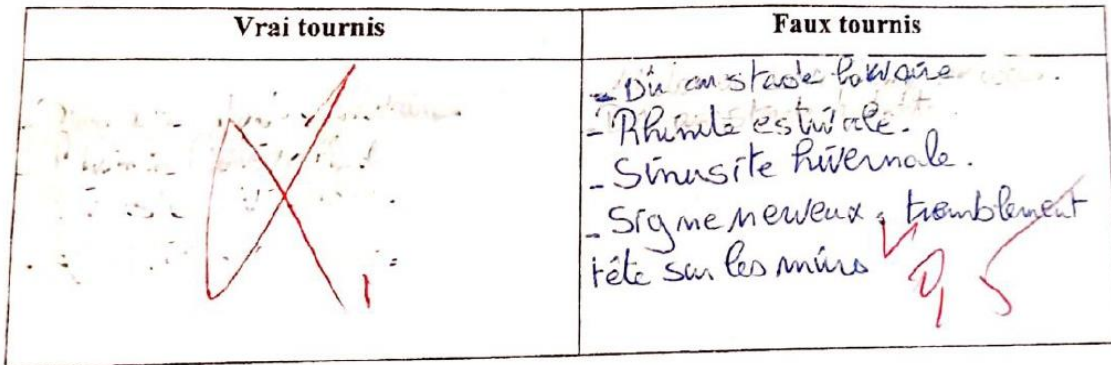 Vrai tournis
Faux tournis
- Dû au stade larvaire
- Rhinite estivale.
- Sinusite hivernale.
- Signe nerveux, tremblement
tête sur les murs
1
0,5